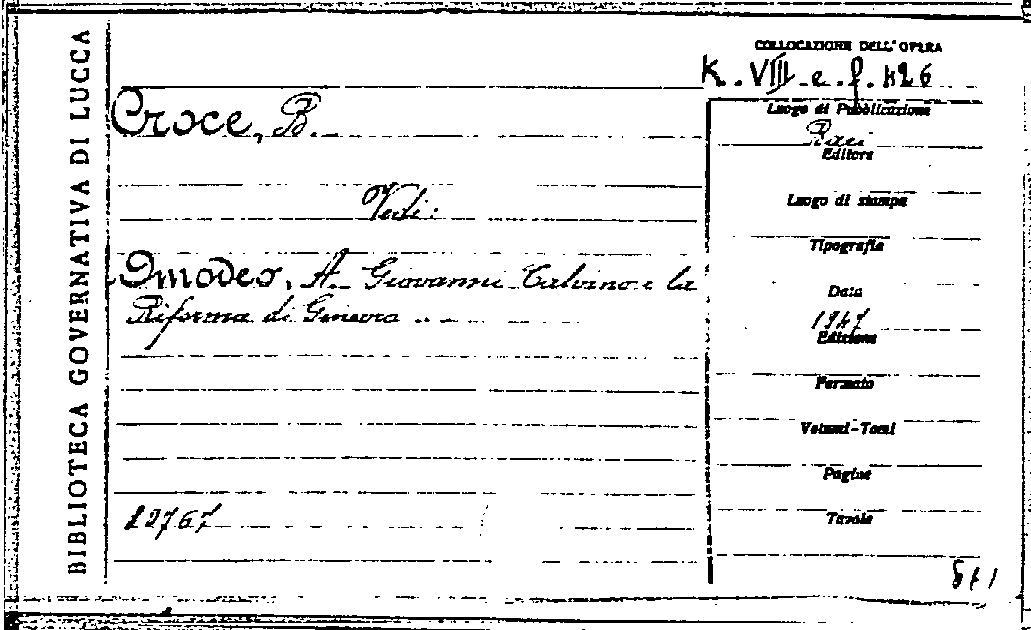 BIBLIOTECA GOVERNATIVA DI LUCCA
COLLOCAZIONE DELL'OPERA
K. VIII. e. f. 426
Croce, B.
Vedi:
Omodeo, A. Giovanni Calvino e la
Riforma di Ginevra ..
12767
Luogo di Pubblicazione
Bari
Editore
Luogo di stampa
Tipografia
Data
1947
Edizione
Formato
Volumi-Tomi
Pagine
Tavole